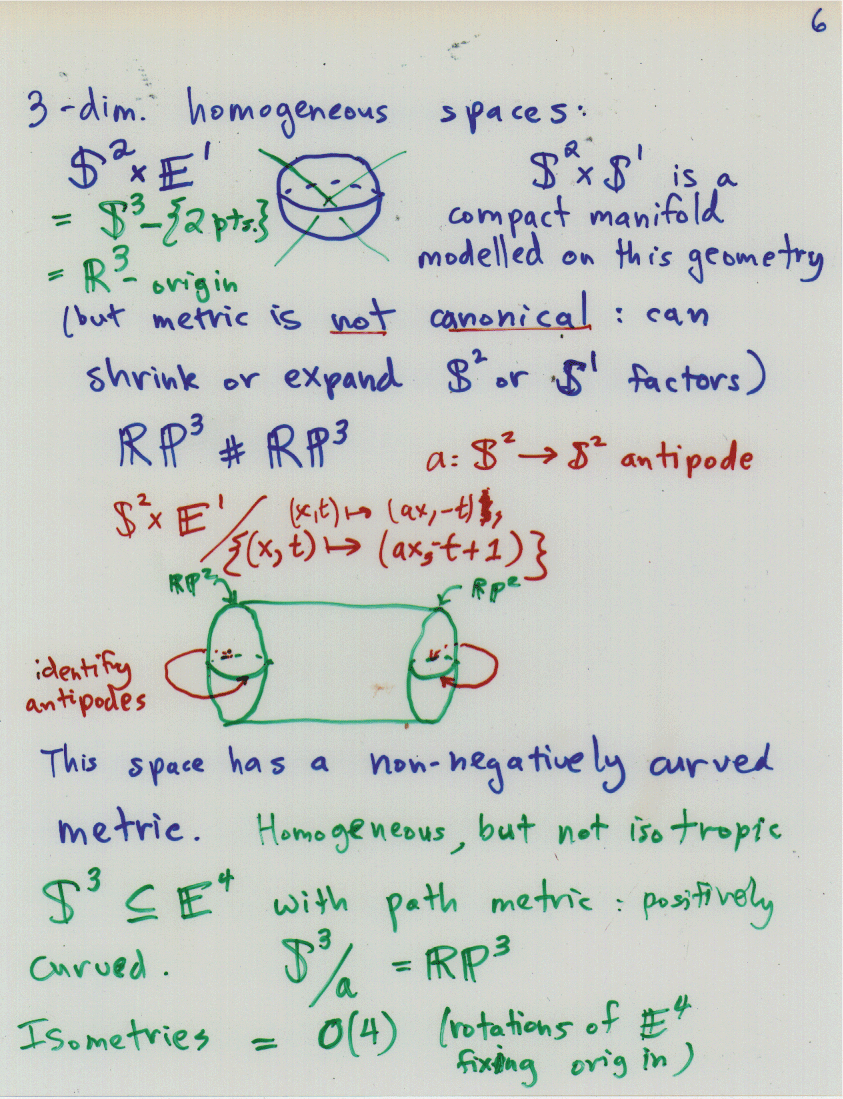 6
3-dim. homogeneous spaces:
𝕊² × 𝔼¹
= 𝕊³-{2 pts.}
= ℝ³- origin
𝕊² × 𝕊¹ is a
compact manifold
modelled on this geometry
(but metric is not canonical : can
shrink or expand 𝕊² or 𝕊¹ factors)
ℝℙ³ # ℝℙ³
a: 𝕊² → 𝕊² antipode
𝕊² × 𝔼¹ / (x,t) ↦ (ax,-t),
{(x,t) ↦ (ax,-t+1)}
ℝℙ² ℝℙ²
identify
antipodes
This space has a non-negatively curved
metric. Homogeneous, but not isotropic
𝕊³ ⊆ 𝔼⁴ with path metric : positively
curved. 𝕊³/a = ℝℙ³
Isometries = O(4) (rotations of 𝔼⁴
fixing origin)